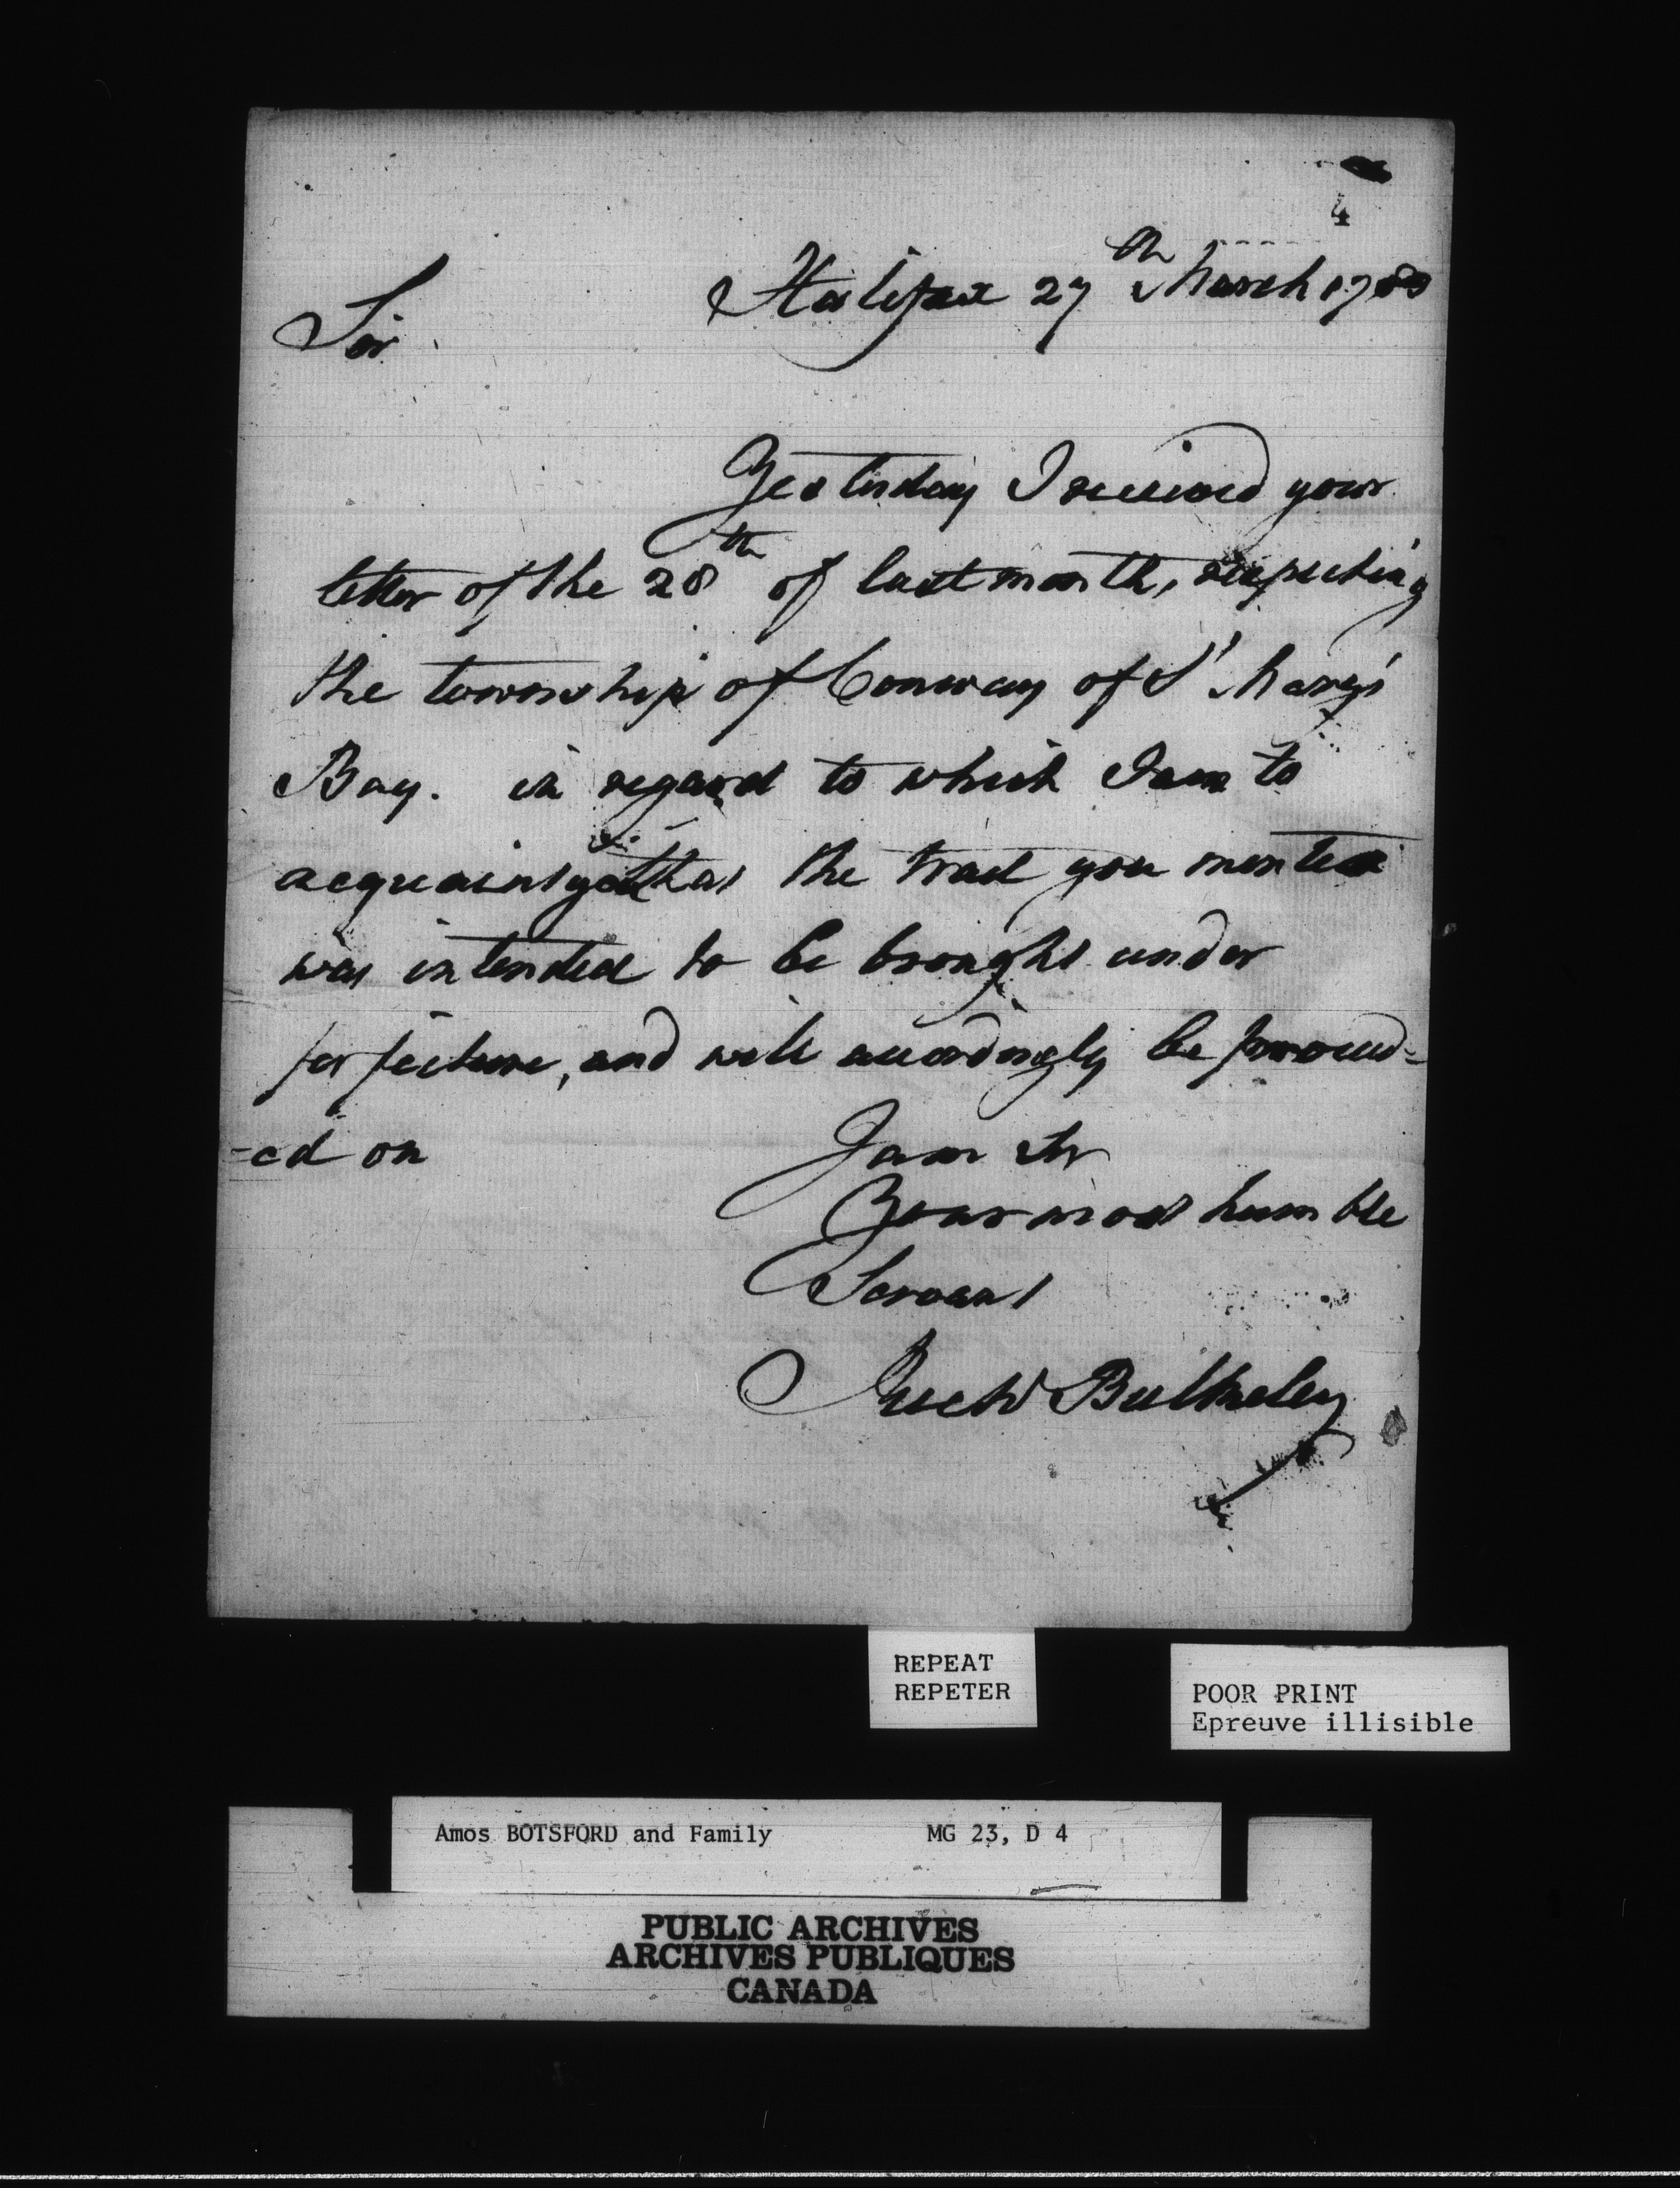 4
Halifax 27th March 1783
Sir
Yesterday I received your
letter of the 28th of last month, respecting
the township of Conway of St Mary's
Bay. in regard to which I am to
acquaint you that the tract you mention
was intended to be brought under
forfeiture, and will accordingly be proceed=
-ed on
I am Sir
Your most humble
Servant
Richd Bulkeley
REPEAT
REPETER
POOR PRINT
Epreuve illisible
Amos BOTSFORD and Family MG 23, D 4
PUBLIC ARCHIVES
ARCHIVES PUBLIQUES
CANADA